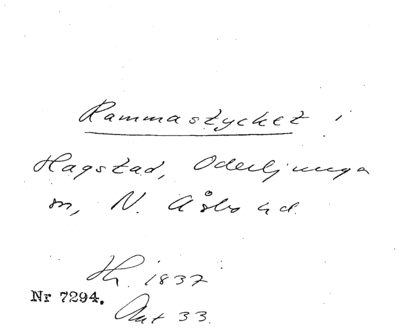 Rammastycket i
Hagstad, Oderljunga
sn, N. Åsbo hd.
Hs. 1837
Nr 7294.
Ant 33.